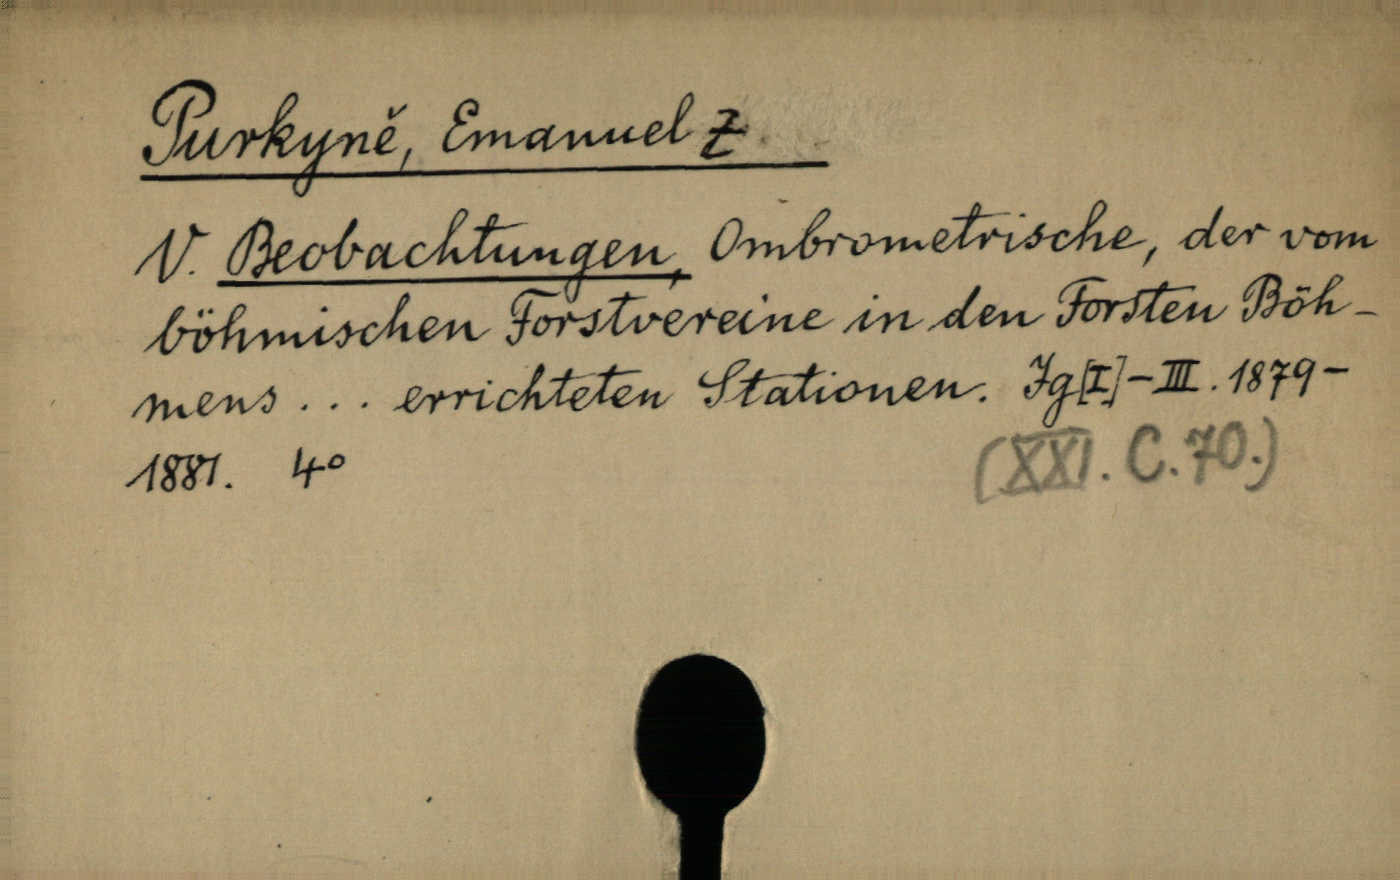 Purkyně, Emanuel Z.
V. Beobachtungen, Ombrometrische, der vom
böhmischen Forstvereine in den Forsten Böh-
mens ... errichteten Stationen. Jg[I]-III. 1879-
1881. 4°
(XXI. C. 70.)